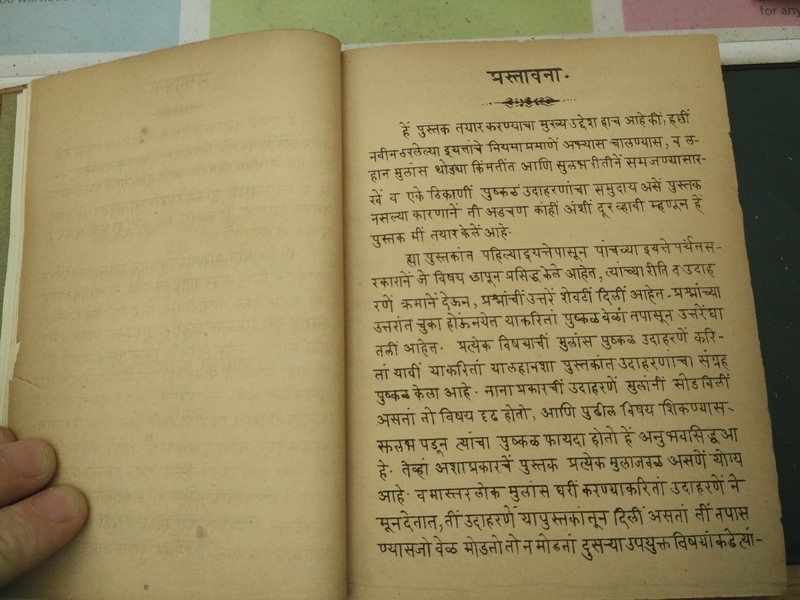 for any
प्रस्तावना.
हें पुस्तक तयार करण्याचा मुख्य उद्देश हाच आहे कीं, हल्लीं
नवीन ठरलेल्या इयत्तांचे नियमाप्रमाणें अभ्यास चालण्यास, व ल-
हान मुलांस थोड्या किंमतींत आणि सुलभ रीतीनें समजण्यासार-
खें व एके ठिकाणीं पुष्कळ उदाहरणांचा समुदाय असें पुस्तक
नसल्या कारणानें ती अडचण कांहीं अंशीं दूर व्हावी म्हणून हें
पुस्तक मीं तयार केलें आहे.
ह्या पुस्तकांत पहिल्या इयत्तेपासून पांचव्या इयत्ते पर्यंत स-
रकारानें जे विषय छापून प्रसिद्ध केले आहेत, त्यांच्या रीति व उदाह
रणें क्रमानें देऊन, प्रश्नांचीं उत्तरें शेवटीं दिलीं आहेत. प्रश्नांच्या
उत्तरांत चुका होऊं नयेत याकरितां पुष्कळ वेळां तपासून उत्तरें घा
तलीं आहेत. प्रत्येक विषयाचीं मुलांस पुष्कळ उदाहरणें करि-
तां यावीं याकरितां या लहानशा पुस्तकांत उदाहरणांचा संग्रह
पुष्कळ केला आहे. नाना प्रकारचीं उदाहरणें मुलांनीं सोडविलीं
असतां तो विषय दृढ होतो, आणि पुढील विषय शिकण्यास-
सुलभ पडून त्यांचा पुष्कळ फायदा होतो हें अनुभवसिद्ध आ
हे. तेव्हां अशा प्रकारचें पुस्तक प्रत्येक मुलाजवळ असणें योग्य
आहे. व मास्तर लोक मुलांस घरीं करण्याकरितां उदाहरणें ने
मून देतात, तीं उदाहरणें या पुस्तकांतून दिलीं असतां तीं तपास
ण्यास जो वेळ मोडतो तो न मोडतां दुसऱ्या उपयुक्त विषयांकडे त्यां-